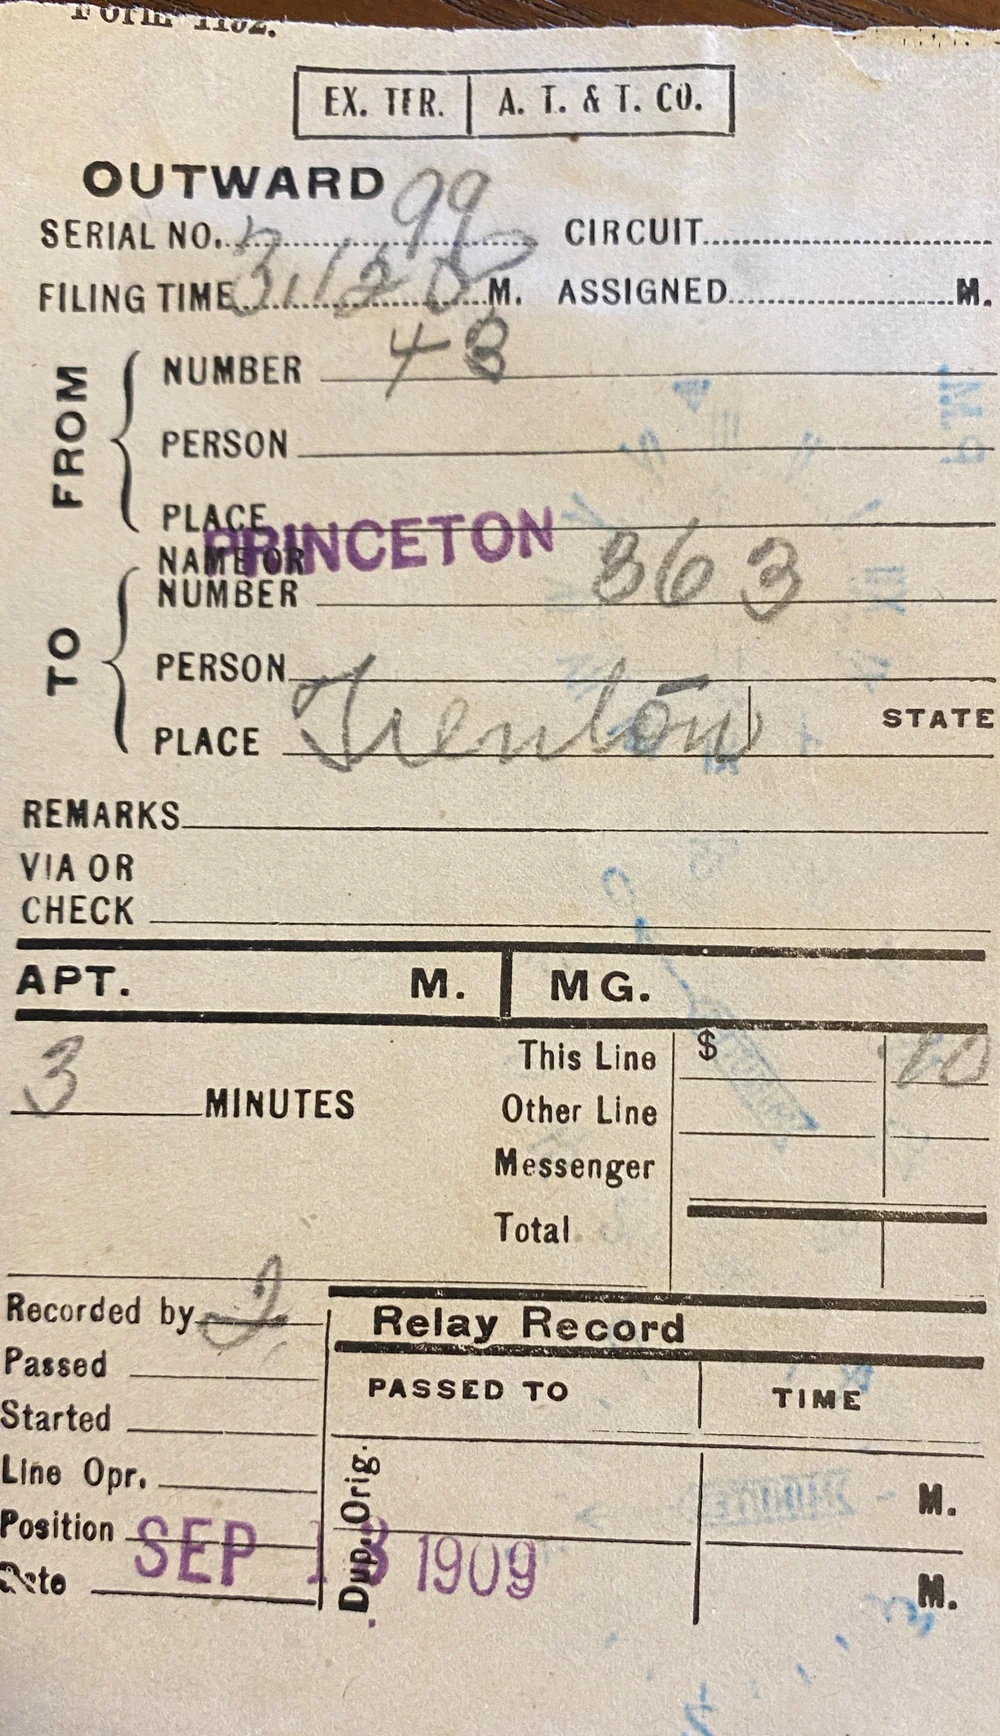 Form 1182.
EX. TER. A. T. & T. CO.
OUTWARD 99
SERIAL NO. CIRCUIT
FILING TIME 3,12 M. ASSIGNED M.
FROM
NUMBER 48
PERSON
PLACE
PRINCETON
TO
NAME OR
NUMBER 363
PERSON
PLACE Trenton STATE
REMARKS
VIA OR
CHECK
APT. M. MG.
3 MINUTES
This Line $ .10
Other Line
Messenger
Total
Recorded by 2
Passed
Started
Line Opr.
Position
Date
SEP 13 1909
Relay Record
PASSED TO TIME
Orig. M.
Dup. M.